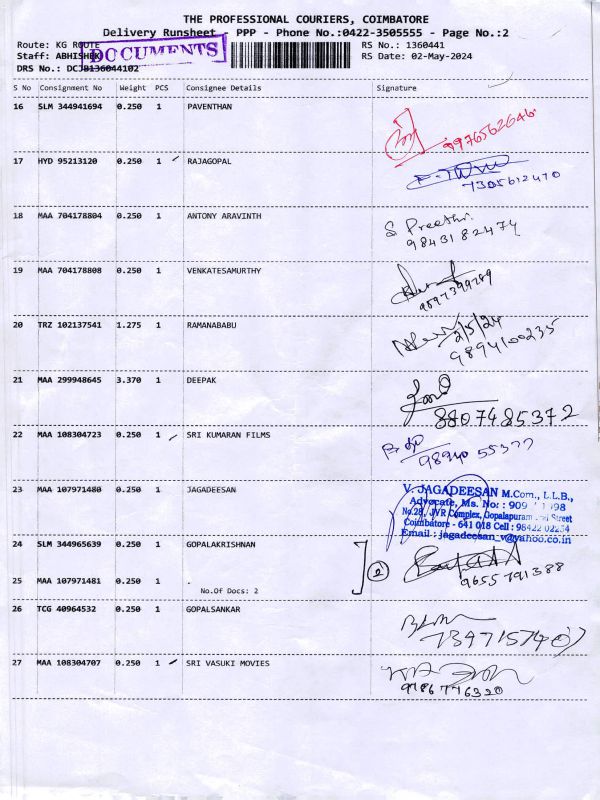 THE PROFESSIONAL COURIERS, COIMBATORE
Delivery Runsheet - PPP - Phone No.:0422-3505555 - Page No.:2
Route: KG ROUTE RS No.: 1360441
Staff: ABHISHEK RS Date: 02-May-2024
DOCUMENTS
DRS No.: DCJB136044102
S No Consignment No Weight PCS Consignee Details Signature
16 SLM 344941694 0.250 1 PAVENTHAN
9976562646
17 HYD 95213120 0.250 1 RAJAGOPAL
7305612470
18 MAA 704178804 0.250 1 ANTONY ARAVINTH
S Preethi
9843182474
19 MAA 704178808 0.250 1 VENKATESAMURTHY
20 TRZ 102137541 1.275 1 RAMANABABU
2/5/24
9894100235
21 MAA 299948645 3.370 1 DEEPAK
8807485372
22 MAA 108304723 0.250 1 SRI KUMARAN FILMS
98940 55377
23 MAA 107971480 0.250 1 JAGADEESAN
V. JAGADEESAN M.Com., L.L.B.,
Advocate, Ms. No: 909
No.28, JVR Complex, Gopalapuram Street
Coimbatore - 641 018 Cell : 98422 02234
Email : jagadeesan_v@yahoo.co.in
24 SLM 344965639 0.250 1 GOPALAKRISHNAN
2
9655791388
25 MAA 107971481 0.250 1 .
No.Of Docs: 2
26 TCG 40964532 0.250 1 GOPALSANKAR
27 MAA 108304707 0.250 1 SRI VASUKI MOVIES
9786776320